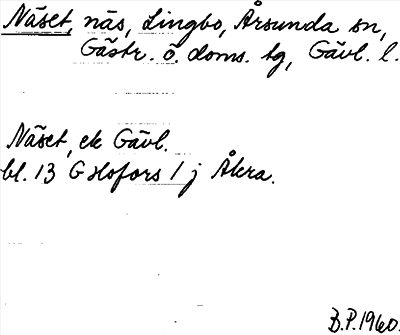 Näset, näs, Lingbo, Årsunda sn,
Gästr. ö. doms. tg, Gävl. l.
Näset, ek Gävl.
bl. 13 G Hofors 1 j Åkra.
B.P.1960.